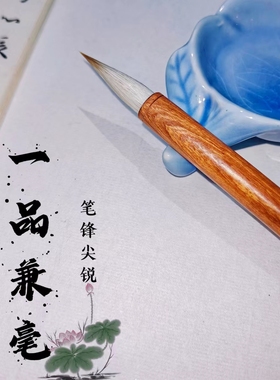 一品兼毫
笔锋尖锐